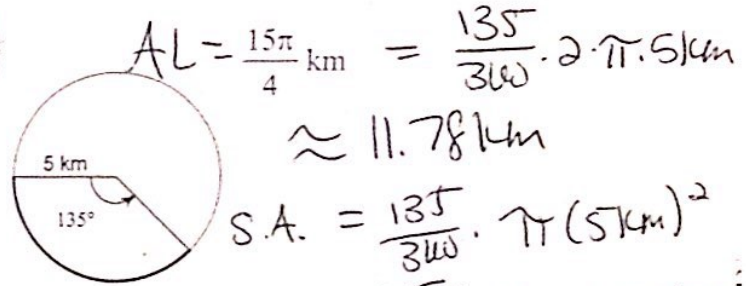 AL = 15π/4 km = 135/360 · 2 · π · 5km
≈ 11.78 km
5 km
135°
S.A. = 135/360 · π (5km)²